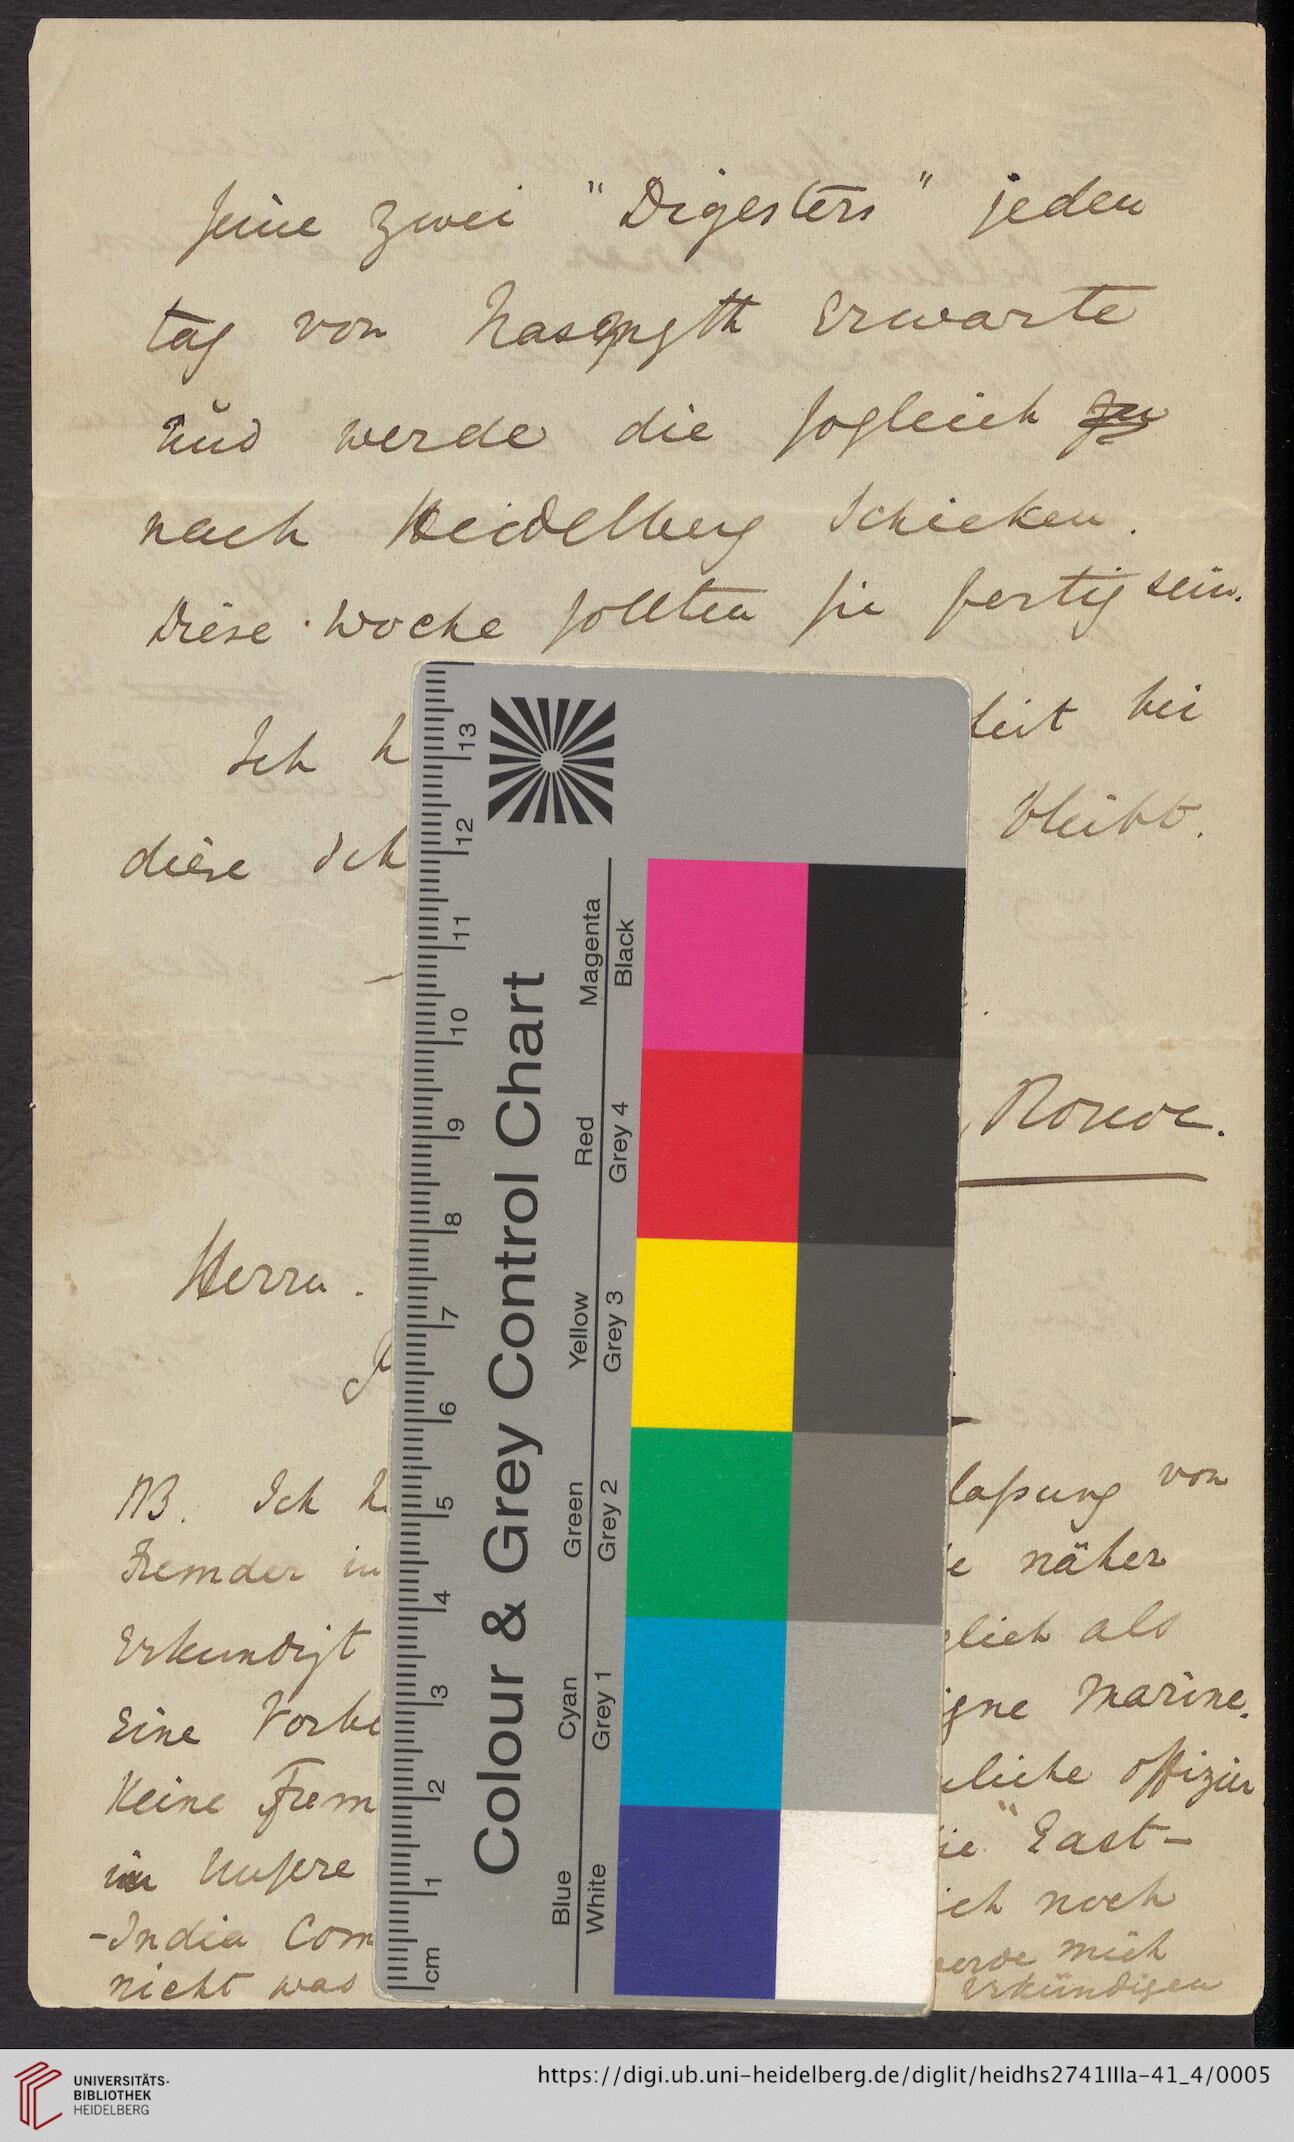 seine zwei "Digesters" jeden
tag von erwarte
und werde die sogleich zu
nach Heidelberg schicken.
Diese Woche sollten sie fertig sein.
Ich h leit bei
diese Sch bleibt.
Roscoe.
Herrn.
P
NB. Ich h laßung von
Fremder in e näher
Erkundigt glich als
Eine Vorbe igne Marine.
Keine Frem liche offizier
in Unsere ie "East-
-India Com ich noch
nicht was werde mich
erkündigen
Colour & Grey Control Chart
Blue Cyan Green Yellow Red Magenta
White Grey 1 Grey 2 Grey 3 Grey 4 Black
cm 1 2 3 4 5 6 7 8 9 10 11 12 13
UNIVERSITÄTS-
BIBLIOTHEK
HEIDELBERG
https://digi.ub.uni-heidelberg.de/diglit/heidhs2741IIIa-41_4/0005